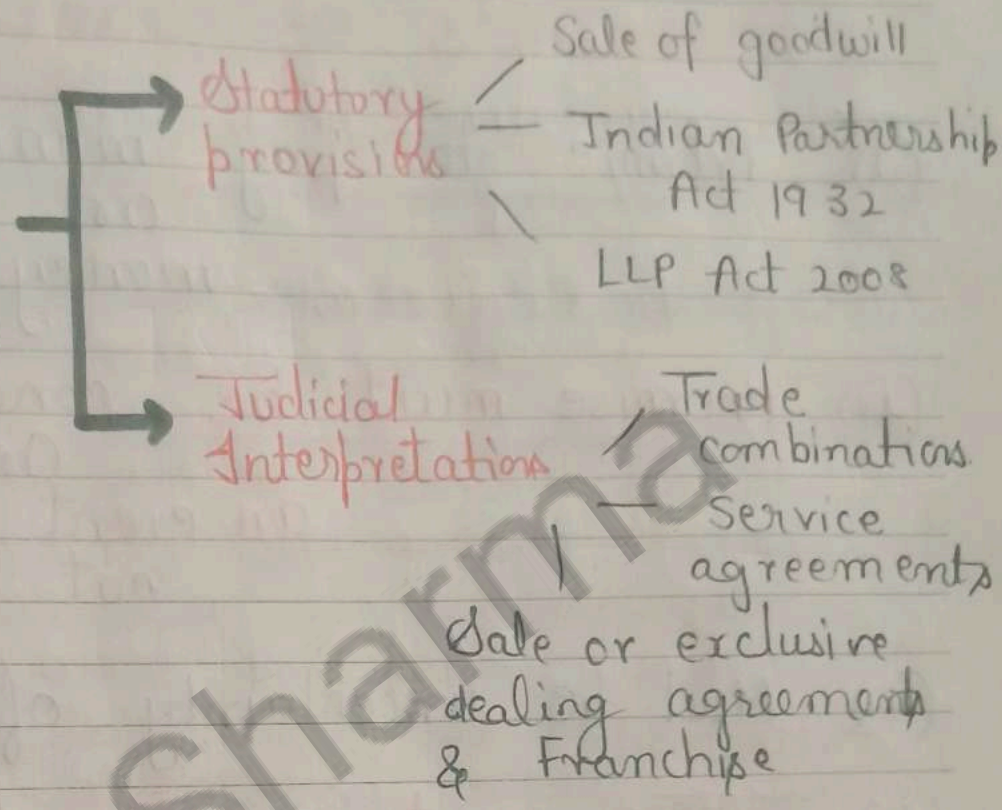 Statutory
provisions
Sale of goodwill
Indian Partnership
Act 1932
LLP Act 2008
Judicial
Interpretations
Trade
combinations.
Service
agreements
Sale or exclusive
dealing agreements
& Franchise
Sharma